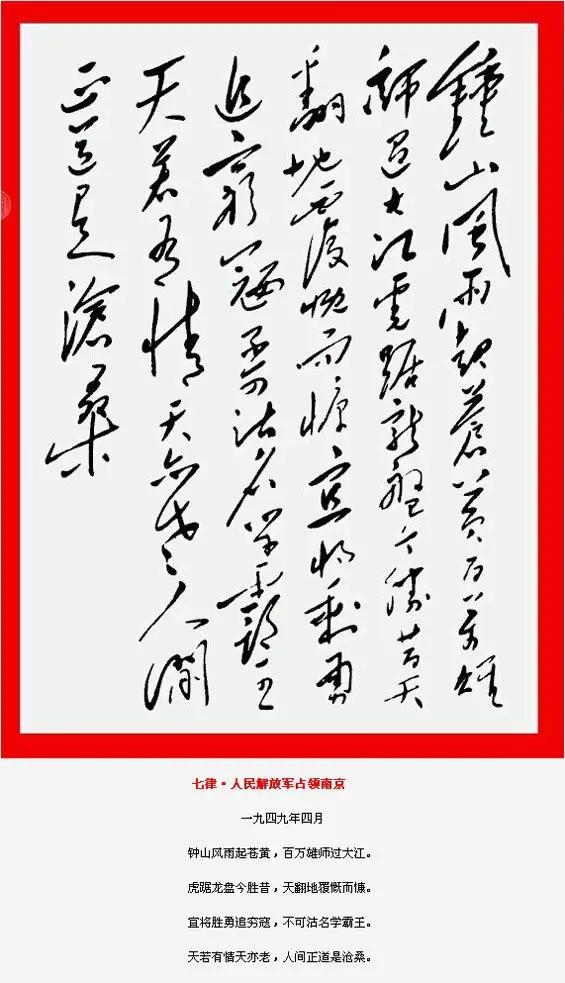 鍾山風雨起蒼黄百万雄
師过大江虎踞龍盤今勝昔天
翻地覆慨而慷宜将剩勇
追窮寇不可沽名学霸王
天若有情天亦老人間
正道是滄桑
七律·人民解放军占领南京
一九四九年四月
钟山风雨起苍黄，百万雄师过大江。
虎踞龙盘今胜昔，天翻地覆慨而慷。
宜将胜勇追穷寇，不可沽名学霸王。
天若有情天亦老，人间正道是沧桑。